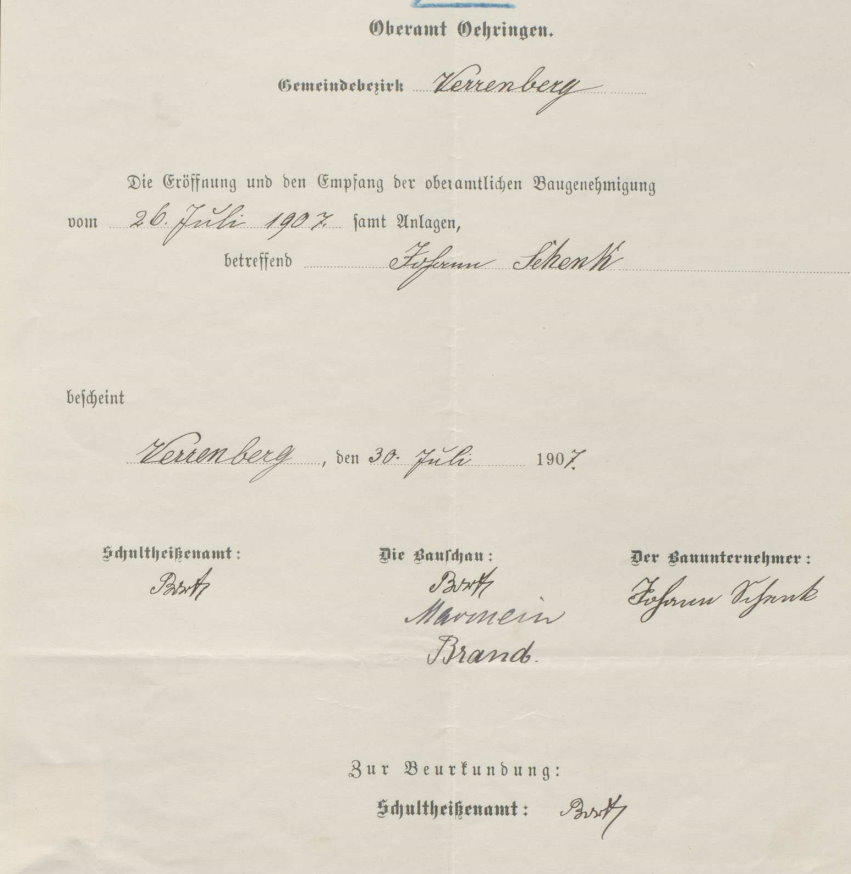 Oberamt Oehringen.
Gemeindebezirk Verrenberg
Die Eröffnung und den Empfang der oberamtlichen Baugenehmigung
vom 26. Juli 1907. samt Anlagen,
betreffend Johann Schenk
bescheint
Verrenberg, den 30. Juli 1907.
Schultheißenamt: Die Bauschau: Der Bauunternehmer:
Johann Schenk
Brand.
Zur Beurkundung:
Schultheißenamt: